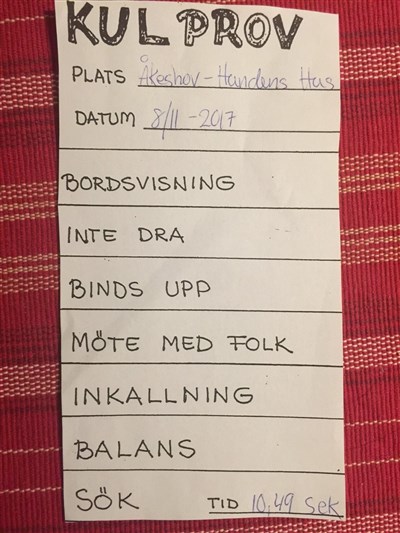 KUL PROV
PLATS Åkeshov - Hundens Hus
DATUM 8/11 - 2017
BORDSVISNING
INTE DRA
BINDS UPP
MÖTE MED FOLK
INKALLNING
BALANS
SÖK TID 10,49 sek